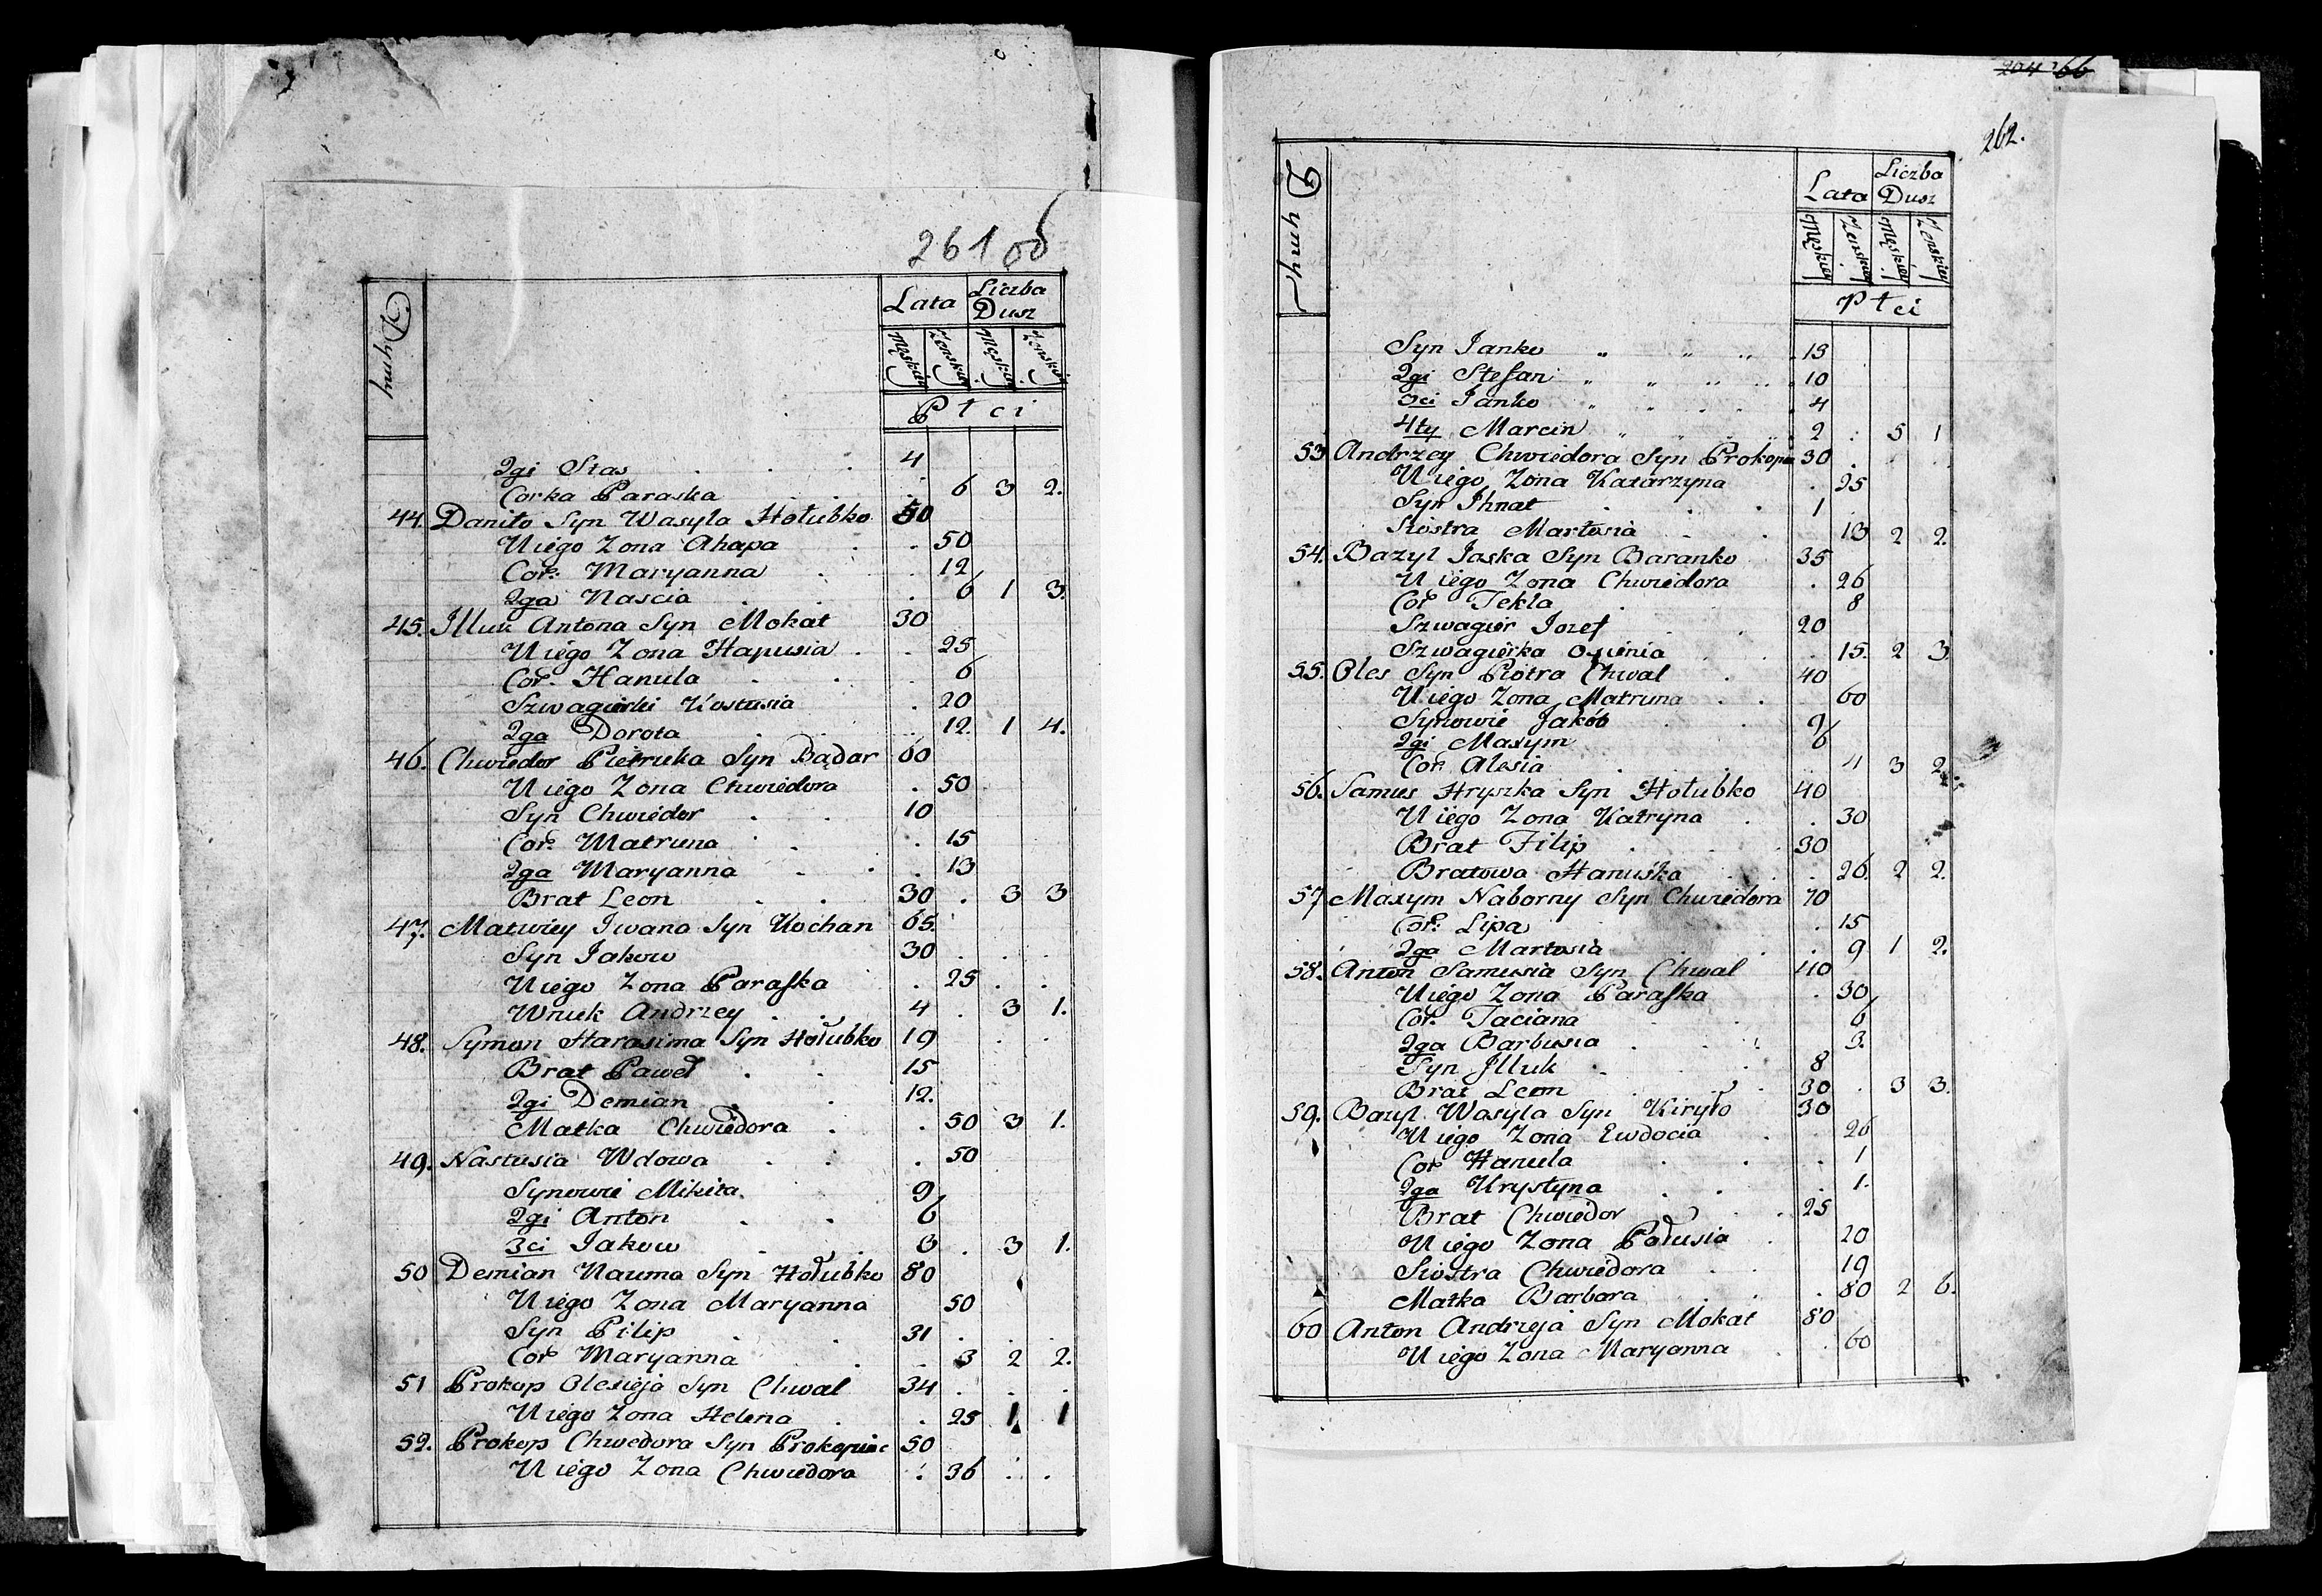 261 об
Dymy
Lata
Liczba
Dusz
Męskiey Żenskiey Męskiey Żenskiey
Płci
2gi Stas 4
Corka Paraska 6 3 2.
44. Daniło Syn Wasyla Hołubko 50
U iego Zona Ahapa 50
Cor: Maryanna 12
2ga Nascia 6 1 3.
45. Illuk Antona Syn Mokat 30
U iego Zona Hapusia 25
Cor. Hanula 6
Szwagierki Kostusia 20
2ga Dorota 12. 1 4.
46. Chwiedor Pietruka Syn Bądar 60
U iego Zona Chwiedora 50
Syn Chwiedor 10
Cor: Matruna 15
2ga Maryanna 13
Brat Leon 30 3 3
47. Matwiey Iwana Syn Kochan 65.
Syn Jakow 30
U iego Zona Paraska 25
Wnuk Andrzey 4 3 1.
48. Symon Harasima Syn Hołubko 19
Brat Paweł 15
2gi Demian 12.
Matka Chwiedora 50 3 1.
49. Nastusia Wdowa 50
Synowie Mikita 9
2gi Anton 6
3ci Jakow 3 3 1.
50 Demian Nauma Syn Hołubko 80
U iego Zona Maryanna 50
Syn Pilip 31
Cor Maryanna 3 2 2.
51 Prokop Olesieja Syn Chwal 34
U iego Zona Helena 25 1 1
52. Prokop Chwedora Syn Prokopiuc 50
U iego Zona Chwiedora 36
204 66
262.
Dymy
Lata
Liczba
Dusz
Męskiey Żenskiey Męskiey Żenskiey
Płci
Syn Janko 15
2gi Stefan 10
3ci Janko 4
4ty Marcin 2 5 1
53 Andrzey Chwiedora Syn Prokopiu 30
U iego Zona Katarzyna 25
Syn Ihnat 1
Siostra Martosia 13 2 2.
54. Bazyl Jaska Syn Baranko 35
U iego Zona Chwiedora 26
Cor Tekla 8
Szwagier Jozef 20
Szwagierka 15. 2 3
55. Oles Syn Piotra Chwal 40
U iego Zona Matruna 60
Synowie Jakób 9
2gi Maxym 6
Cor. Alesia 4 3 2.
56. Samus Hryszka Syn Hołubko 40
U iego Zona Katryna 30
Brat Filip 30
Bratowa Hanuska 26. 2 2.
57 Maxym Naborny Syn Chwiedora 70
Cor: Lipa 15
2ga Martosia 9 1 2.
58. Anton Samusia Syn Chwal 40
U iego Zona Paraska 30
Cor. Taciana 6
2ga Barbusia 3.
Syn Illuk 8
Brat Leon 30 3 3.
59. Bazyl Wasyla Syn Kiryło 30
U iego Zona Ewdocia 26
Cor Hanula 1
2ga Krystyna 1.
Brat Chwiedor 25
U iego Zona Połusia 20
Siostra Chwiedora 19
Matka Barbara 80 2 6.
60 Anton Andrzeja Syn Mokat 80
U iego Zona Maryanna 60